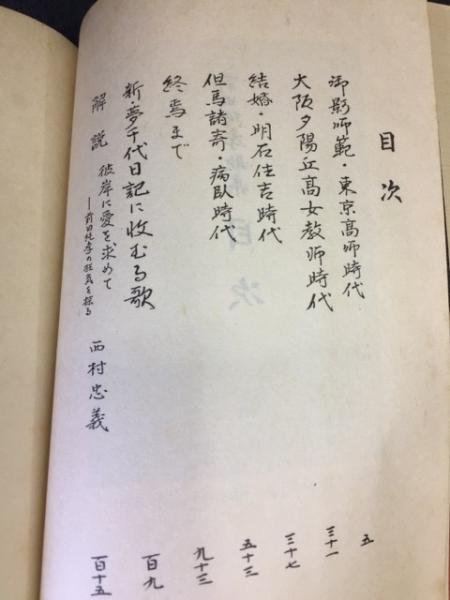 目次
御影師範・東京高師時代 五
大阪夕陽丘高女教師時代 三十一
結婚・明石住吉時代 三十七
但馬諸寄・病臥時代 五十三
終焉まで 九十三
新・夢千代日記に收むる歌 百九
解説 彼岸に愛を求めて 西村忠義 百十五
——前田純孝の狂気を探る